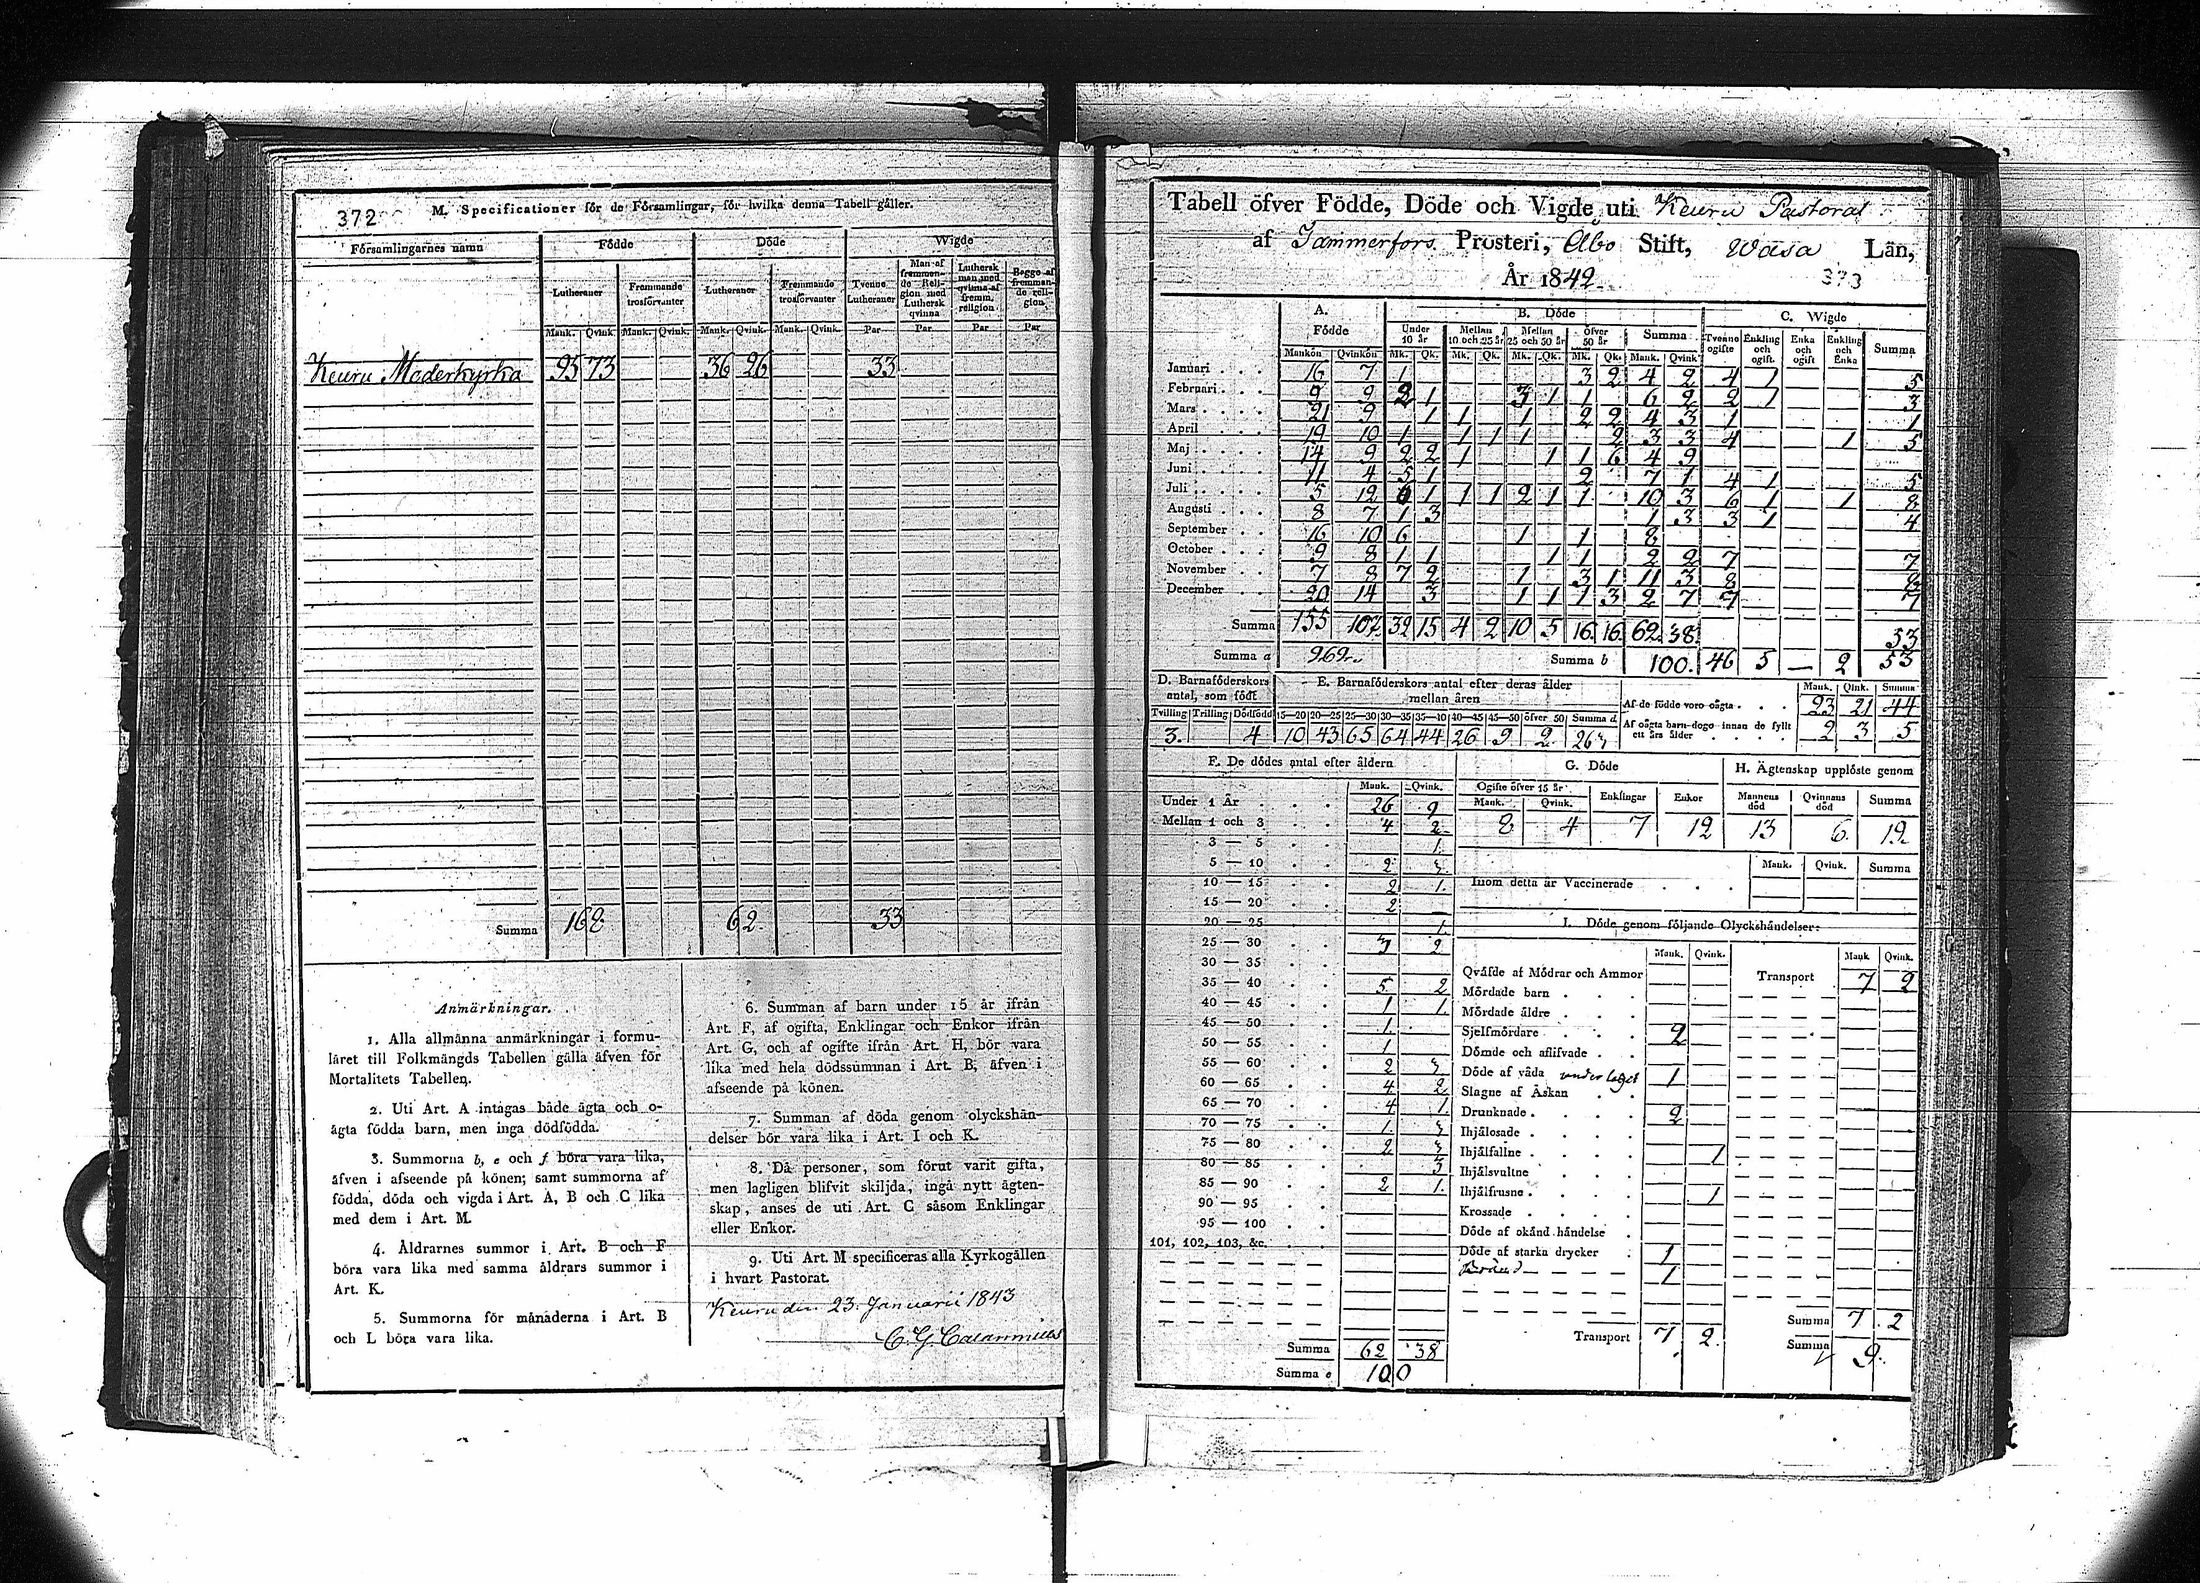 372
M. Specificationer för de Församlingar, för hvilka denna Tabell gäller.
Församlingarnes namn | Födde | Döde | Wigde
Lutheraner | Fremmande trosförvanter | Lutheraner | Fremmande trosförvanter | Tvenne Lutheraner | Man af fremmende Religion med Luthersk qvinna | Luthersk man med qvinna af fremm. religion | Begge af fremmande religion
Mank. Qvink. Mank. Qvink. Mank. Qvink. Mank. Qvink. Par Par Par Par
Keuru Moderkyrka 95 73 36 26 33
Summa 168 62 33
Anmärkningar.
1. Alla allmänna anmärkningar i formu-
läret till Folkmängds Tabellen gälla äfven för
Mortalitets Tabellen.
2. Uti Art. A intagas både ägta och o-
ägta födda barn, men inga dödfödda.
3. Summorna b, e och f böra vara lika,
äfven i afseende på könen; samt summorna af
födda, döda och vigda i Art. A, B och C lika
med dem i Art. M.
4. Åldrarnes summor i Art. B och F
böra vara lika med samma åldrars summor i
Art. K.
5. Summorna för månaderna i Art. B
och L böra vara lika.
6. Summan af barn under 15 år ifrån
Art. F, af ogifta, Enklingar och Enkor ifrån
Art. G, och af ogifte ifrån Art. H, bör vara
lika med hela dödssumman i Art. B, äfven i
afseende på könen.
7. Summan af döda genom olyckshän-
delser bör vara lika i Art. I och K.
8. Då personer, som förut varit gifta,
men lagligen blifvit skiljda, ingå nytt ägten-
skap, anses de uti Art. C såsom Enklingar
eller Enkor.
9. Uti Art. M specificeras alla Kyrkogällen
i hvart Pastorat.
Keuru den 23 Januarii 1843
C. G. Calamnius
Tabell öfver Födde, Döde och Vigde uti Keuru Pastorat
af Tammerfors Prosteri, Åbo Stift, Wasa Län,
År 1842.
373
A. Födde | B. Döde | C. Wigde
Under 10 år | Mellan 10 och 25 år | Mellan 25 och 50 år | öfver 50 år | Summa | Tvenne ogifte | Enkling och ogift | Enka och ogift | Enkling och Enka | Summa
Mankön Qvinkön Mk. Qk. Mk. Qk. Mk. Qk. Mk. Qk. Mank. Qvink.
Januari 16 7 1 3 2 4 2 4 1 5
Februari 9 9 2 1 3 1 1 6 2 2 1 3
Mars 21 9 1 1 1 2 2 4 3 1 1
April 19 10 1 1 1 1 2 3 3 4 1 5
Maj 14 9 2 2 1 1 1 6 4 9
Juni 11 4 5 1 2 7 1 4 1 5
Juli 5 12 6 1 1 1 2 1 1 10 3 6 1 1 8
Augusti 8 7 1 3 1 3 3 1 4
September 16 10 6 1 1 8
October 9 8 1 1 1 1 2 2 7 7
November 7 8 7 2 1 3 1 11 3 8 8
December 20 14 3 1 1 1 3 2 7 7 7
Summa 155 107 32 15 4 2 10 5 16 16 62 38 53
Summa a 262 Summa b 100. 46 5 — 2 53
D. Barnaföderskors antal, som födt
E. Barnaföderskors antal efter deras ålder mellan åren
Tvilling Trilling Dödfödd 15—20 20—25 25—30 30—35 35—40 40—45 45—50 öfver 50 Summa d
3. 4 10 43 65 64 44 26 9 2 263
Mank. Qink. Summa
Af de födde voro oägta 23 21 44
Af oägta barn dogo innan de fyllt ett års ålder 2 3 5
F. De dödes antal efter åldern
Mank. Qvink.
Under 1 År 26 9
Mellan 1 och 3 4 2
3 — 5 1
5 — 10 2 3
10 — 15 2 1.
15 — 20 2
20 — 25 1.
25 — 30 3 2
30 — 35
35 — 40 5 2
40 — 45 1 1.
45 — 50 1.
50 — 55 1
55 — 60 2 3
60 — 65 4 2
65 — 70 4 1.
70 — 75 1. 3
75 — 80 2 3
80 — 85 3
85 — 90 2 1.
90 — 95
95 — 100
101, 102, 103, &c.
Summa 62 38
Summa e 100
G. Döde
Ogifte öfver 15 år | Enklingar | Enkor
Mank. Qvink.
8 4 7 12
H. Ägtenskap upplöste genom
Mannens död | Qvinnans död | Summa
13 6 19
Mank. Qvink. Summa
Inom detta år Vaccinerade
I. Döde genom följande Olyckshändelser:
Mank. Qvink.
Qväfde af Mödrar och Ammor
Mördade barn
Mördade äldre
Sjelfmördare 2
Dömde och aflifvade
Döde af våda 1
Slagne af Åskan
Drunknade 2
Ihjälosade
Ihjälfallne 1
Ihjälsvultne
Ihjälfrusne 1
Krossade
Döde af okänd händelse
Döde af starka drycker 1
1
Transport 7 2
Mank Qvink.
Transport 7 2
Summa 7 2
Summa 9.